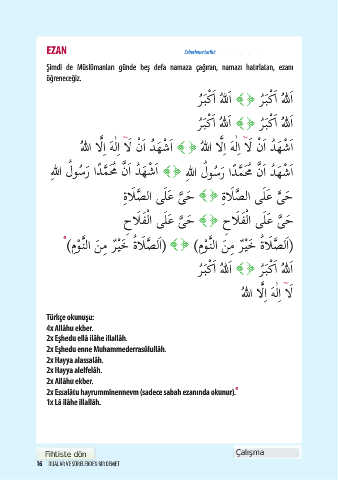 EZAN
Şimdi de Müslümanları günde beş defa namaza çağıran, namazı hatırlatan, ezanı
öğreneceğiz.
اَللّٰهُ اَكْبَرُ ﴿﴾ اَللّٰهُ اَكْبَرُ
اَللّٰهُ اَكْبَرُ ﴿﴾ اَللّٰهُ اَكْبَرُ
اَشْهَدُ اَنْ لَٓا اِلٰهَ اِلَّا اللّٰهُ ﴿﴾ اَشْهَدُ اَنْ لَٓا اِلٰهَ اِلَّا اللّٰهُ
اَشْهَدُ اَنَّ مُحَمَّدًا رَسُولُ اللّٰهِ ﴿﴾ اَشْهَدُ اَنَّ مُحَمَّدًا رَسُولُ اللّٰهِ
حَيَّ عَلَى الصَّلَاةِ ﴿﴾ حَيَّ عَلَى الصَّلَاةِ
حَيَّ عَلَى الْفَلَاحِ ﴿﴾ حَيَّ عَلَى الْفَلَاحِ
(اَلصَّلَاةُ خَيْرٌ مِنَ النَّوْمِ) ﴿﴾ (اَلصَّلَاةُ خَيْرٌ مِنَ النَّوْمِ)*
اَللّٰهُ اَكْبَرُ ﴿﴾ اَللّٰهُ اَكْبَرُ
لَٓا اِلٰهَ اِلَّا اللّٰهُ
Türkçe okunuşu:
4x Allâhu ekber.
2x Eşhedu ellâ ilâhe illallâh.
2x Eşhedu enne Muhammederrasûlullâh.
2x Hayya alassalâh.
2x Hayya alelfelâh.
2x Allâhu ekber.
2x Essalâtu hayrumminennevm (sadece sabah ezanında okunur).*
1x Lâ ilâhe illallâh.
Fihliste dön
Çalışma
16